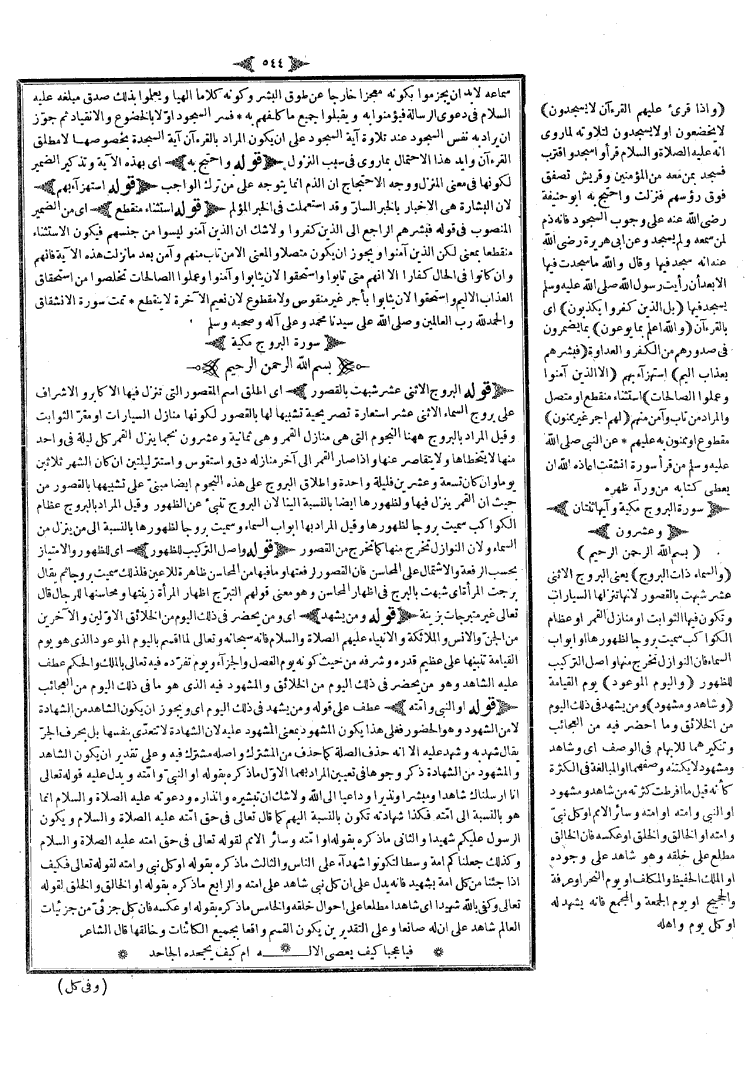 ٥٤٤
سماعه لابد ان يجزموا بكونه معجزا خارجا عن طوق البشر وكونه كلاما الهيا ويعملوا بذلك صدق مبلغه عليه
السلام فى دعوى الرسالة فيؤمنوا به و يقبلوا جميع ما كلفهم به * فسر السجود اوّلا بالخضوع والانقياد ثم جوّز
ان يراد به نفس السجود عند تلاوة آية السجود على ان يكون المراد بالقرءآن آية السجدة بخصوصها لا مطلق
القرءآن وايد هذا الاحتمال بما روى فى سبب النزول ﴿ قوله واحتج به ﴾ اى بهذه الآية وتذكير الضمير
لكونها فى معنى المنزل ووجه الاحتجاج ان الذم انما يتوجه على من ترك الواجب ﴿ قوله استهزآء بهم ﴾
لان البشارة هى الاخبار بالخبر السارّ وقد استعملت فى الخبر المؤلم ﴿ قوله استثناء منقطع ﴾ اى من الضمير
المنصوب فى قوله فبشرهم الراجع الى الذين كفروا ولاشك ان الذين آمنوا ليسوا من جنسهم فيكون الاستثناء
منقطعا بمعنى لكن الذين آمنوا ويجوز ان يكون متصلا والمعنى الا من تاب منهم وآمن بعد ما نزلت هذه الآية فانهم
وان كانوا فى الحال كفارا الا انهم متى تابوا واستحقوا لان يثابوا وآمنوا وعملوا الصالحات تخلصوا من استحقاق
العذاب الاليم واستحقوا لان يثابوا بأجر غير منقوص ولا مقطوع لان نعيم الآخرة لا ينقطع * تمت سورة الانشقاق
والحمدلله رب العالمين وصلى الله على سيدنا محمد وعلى آله وصحبه وسلم
﴿ سورة البروج مكية ﴾
﴿ بسم الله الرحمن الرحيم ﴾
﴿ قوله البروج الاثنى عشر شبهت بالقصور ﴾ اى اطلق اسم المقصور التى تنزل فيها الاكابر والاشراف
على بروج السماء الاثنى عشر استعارة تصريحية تشبيها لها بالقصور لكونها منازل السيارات او مقرّ الثوابت
وقيل المراد بالبروج ههنا النجوم التى هى منازل القمر وهى ثمانية وعشرون نجما ينزل القمر كل ليلة فى واحد
منها لا يتخطاها ولا يتقاصر عنها واذا صار القمر الى آخر منازله دق واستقوس واستتر ليلتين ان كان الشهر ثلاثين
يوما وان كان تسعة وعشرين فليلة واحدة واطلاق البروج على هذه النجوم ايضا مبنىّ على تشبيهها بالقصور من
حيث ان القمر ينزل فيها ولظهورها ايضا بالنسبة الينا لان البروج تنبئ عن الظهور وقيل المراد بالبروج عظام
الكواكب سميت بروجا لظهورها وقيل المراد بها ابواب السماء وسميت بروجا لظهورها بالنسبة الى من ينزل من
السماء ولان النوازل تخرج منها كما تخرج من القصور ﴿ قوله واصل التركيب للظهور ﴾ اى للظهور والامتياز
بحسب الرفعة والاشتمال على المحاسن فان القصور لرفعتها وما فيها من المحاسن ظاهرة للاعين فلذلك سميت بروجا ثم يقال
برجت المرأة اى شبهت بالبرج فى اظهار المحاسن وهو معنى قولهم التبرّج اظهار المرأة زينتها ومحاسنها للرجال قال
تعالى غير متبرجات بزينة ﴿ قوله ومن يشهد ﴾ اى ومن يحضر فى ذلك اليوم من الخلائق الاوّلين والآخرين
من الجنّ والانس والملائكة والانبياء عليهم الصلاة والسلام فانه سبحانه وتعالى لما اقسم باليوم الموعود الذى هو يوم
القيامة تنبيها على عظيم قدره وشرفه من حيث كونه يوم الفصل والجزآء ويوم تفرّده فيه تعالى بالملك والحكم عطف
عليه الشاهد وهو من يحضر فى ذلك اليوم من الخلائق و المشهود فيه الذى هو ما فى ذلك اليوم من العجائب
﴿ قوله او النبى وامته ﴾ عطف على قوله ومن يشهد فى ذلك اليوم اى ويجوز ان يكون الشاهد من الشهادة
لا من الشهود وهو الحضور فعلى هذا يكون المشهود بمعنى المشهود عليه لان الشهادة لا تتعدّى بنفسها بل بحرف الجرّ
يقال شهد به وشهد عليه الا انه حذف الصلة كما حذف من المشترك واصله مشترك فيه وعلى تقدير ان يكون الشاهد
والمشهود من الشهادة ذكر وجوها فى تعيين المراد بهما الاوّل ما ذكره بقوله او النبىّ وامته ويدل عليه قوله تعالى
انا ارسلناك شاهدا ومبشرا ونذيرا وداعيا الى الله ولاشك ان تبشيره وانذاره ودعوته عليه الصلاة والسلام انما
هو بالنسبة الى امّته فكذا شهادته تكون بالنسبة اليهم كما قال تعالى فى حق امته عليه الصلاة والسلام ويكون
الرسول عليكم شهيدا والثانى ما ذكره بقوله او امّته وسائر الامم لقوله تعالى فى حق امته عليه الصلاة والسلام
وكذلك جعلناكم امة وسطا لتكونوا شهدآء على الناس والثالث ما ذكره بقوله او كل نبى وامته لقوله تعالى فكيف
اذا جئنا من كل امة بشهيد فانه يدل على ان كل نبى شاهد على امته والرابع ما ذكره بقوله او الخالق والخلق لقوله
تعالى وكفى بالله شهيدا اى شاهدا مطلعا على احوال خلقه والخامس ما ذكره بقوله او عكسه فان كل جزئىّ من جزئيات
العالم شاهد على ان له صانعا وعلى التقديرين يكون القسم واقعا بجميع الكائنات وخالقها قال الشاعر
* فيا عجبا كيف يعصى الالـــه * ام كيف يجحده الجاحد *
( وفى كل )
(واذا قرئ عليهم القرءآن لا يسجدون)
لا يخضعون او لا يسجدون لتلاوته لما روى
انه عليه الصلاة والسلام قرأ واسجد واقترب
فسجد بمن معه من المؤمنين وقريش تصفق
فوق رؤسهم فنزلت واحتج به ابوحنيفة
رضى الله عنه على وجوب السجود فانه ذم
لمن سمعه ولم يسجد وعن ابى هريرة رضى الله
عنه انه سجد فيها وقال والله ما سجدت فيها
الا بعد ان رأيت رسول الله صلى الله عليه وسلم
يسجد فيها (بل الذين كفروا يكذبون) اى
بالقرءآن (والله اعلم بما يوعون) بما يضمرون
فى صدورهم من الكفر والعداوة (فبشرهم
بعذاب اليم) استهزآء بهم (الا الذين آمنوا
وعملوا الصالحات) استثناء منقطع او متصل
والمراد من تاب وآمن منهم (لهم اجر غير ممنون)
مقطوع او ممنون به عليهم * عن النبى صلى الله
عليه وسلم من قرأ سورة انشقت اعاذه الله ان
يعطى كتابه من ورآء ظهره
﴿ سورة البروج مكية وآيها ثنتان ﴾
﴿ وعشرون ﴾
( بسم الله الرحمن الرحيم )
(والسماء ذات البروج) يعنى البروج الاثنى
عشر شبهت بالقصور لانها تنزلها السيارات
وتكون فيها الثوابت او منازل القمر او عظام
الكواكب سميت بروجا لظهورها او ابواب
السماء فان النوازل تخرج منها واصل التركيب
للظهور (واليوم الموعود) يوم القيامة
(وشاهد ومشهود) ومن يشهد فى ذلك اليوم
من الخلائق وما احضر فيه من العجائب
وتنكيرهما للابهام فى الوصف اى وشاهد
ومشهود لا يكتنه وصفهما او المبالغة فى الكثرة
كأنه قيل ما افرطت كثرته من شاهد ومشهود
او النبى وامته او امته وسائر الامم او كل نبىّ
وامته او الخالق والخلق او عكسه فان الخالق
مطلع على خلقه وهو شاهد على وجوده
او الملك الحفيظ والمكلف او يوم النحر او عرفة
والحجيج او يوم الجمعة والمجمع فانه يشهد له
او كل يوم واهله